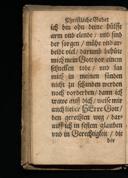 Christliche Gebet
ich bin ohn deine hülffe
arm vnd elende / vnd sind
der sorgen / mühe vnd ar-
beit viel / darumb behüte
mich mein Gott vor einem
schnellen tode / vnd las
mich in meinen sünden
nicht zu schanden werden
noch verderben / dann ich
trawe auff dich / weise mir
auch lieber HErre Gott /
den gerechten weg / dar-
auff ich in festem glauben
vnd in Gerechtigkeit / die